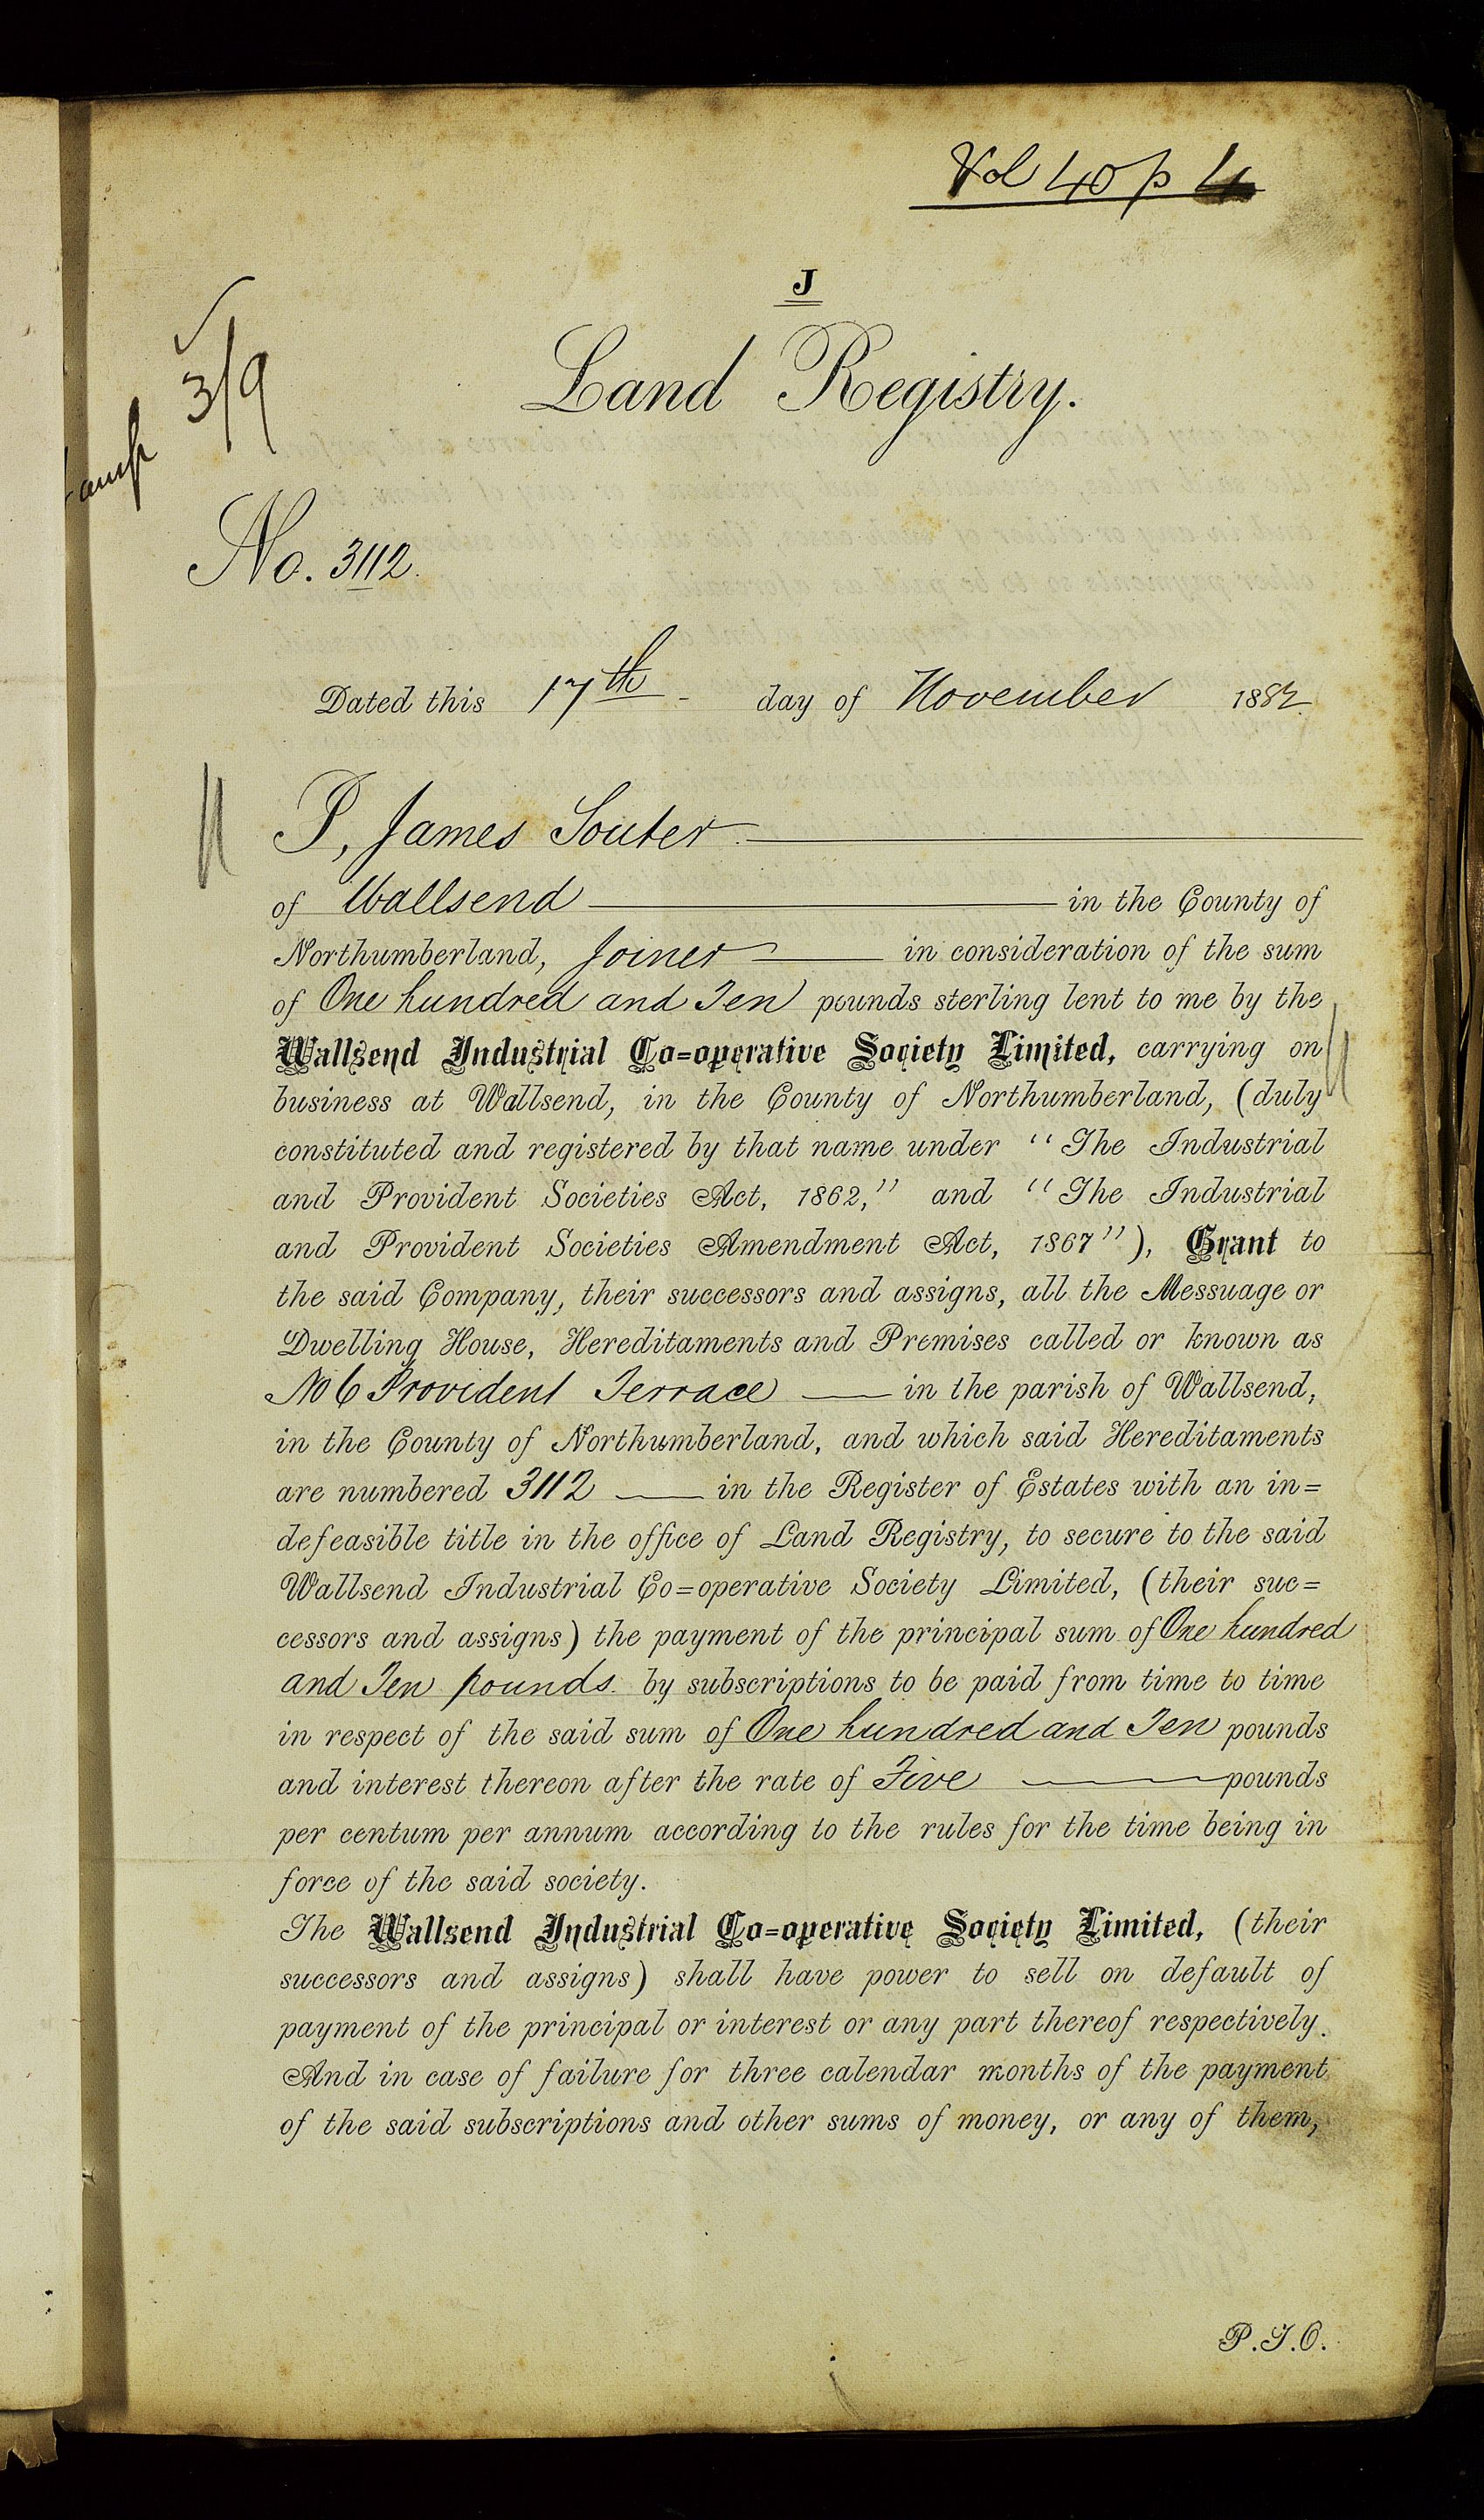 Vol 40 p 4
J
Land Registry.
3/9
No. 3112.
Dated this 17th day of November 1882
I, James Souter
of Wallsend in the County of
Northumberland, Joiner in consideration of the sum
of One hundred and Ten pounds sterling lent to me by the
Wallsend Industrial Co=operative Society Limited, carrying on
business at Wallsend, in the County of Northumberland, (duly
constituted and registered by that name under "The Industrial
and Provident Societies Act, 1862," and "The Industrial
and Provident Societies Amendment Act, 1867"), Grant to
the said Company, their successors and assigns, all the Messuage or
Dwelling House, Hereditaments and Premises called or known as
No 6 Provident Terrace in the parish of Wallsend,
in the County of Northumberland, and which said Hereditaments
are numbered 3112 in the Register of Estates with an in=
defeasible title in the office of Land Registry, to secure to the said
Wallsend Industrial Co=operative Society Limited, (their suc=
cessors and assigns) the payment of the principal sum of One hundred
and Ten pounds by subscriptions to be paid from time to time
in respect of the said sum of One hundred and Ten pounds
and interest thereon after the rate of Five pounds
per centum per annum according to the rules for the time being in
force of the said society.
The Wallsend Industrial Co=operative Society Limited, (their
successors and assigns) shall have power to sell on default of
payment of the principal or interest or any part thereof respectively.
And in case of failure for three calendar months of the payment
of the said subscriptions and other sums of money, or any of them,
P.T.O.